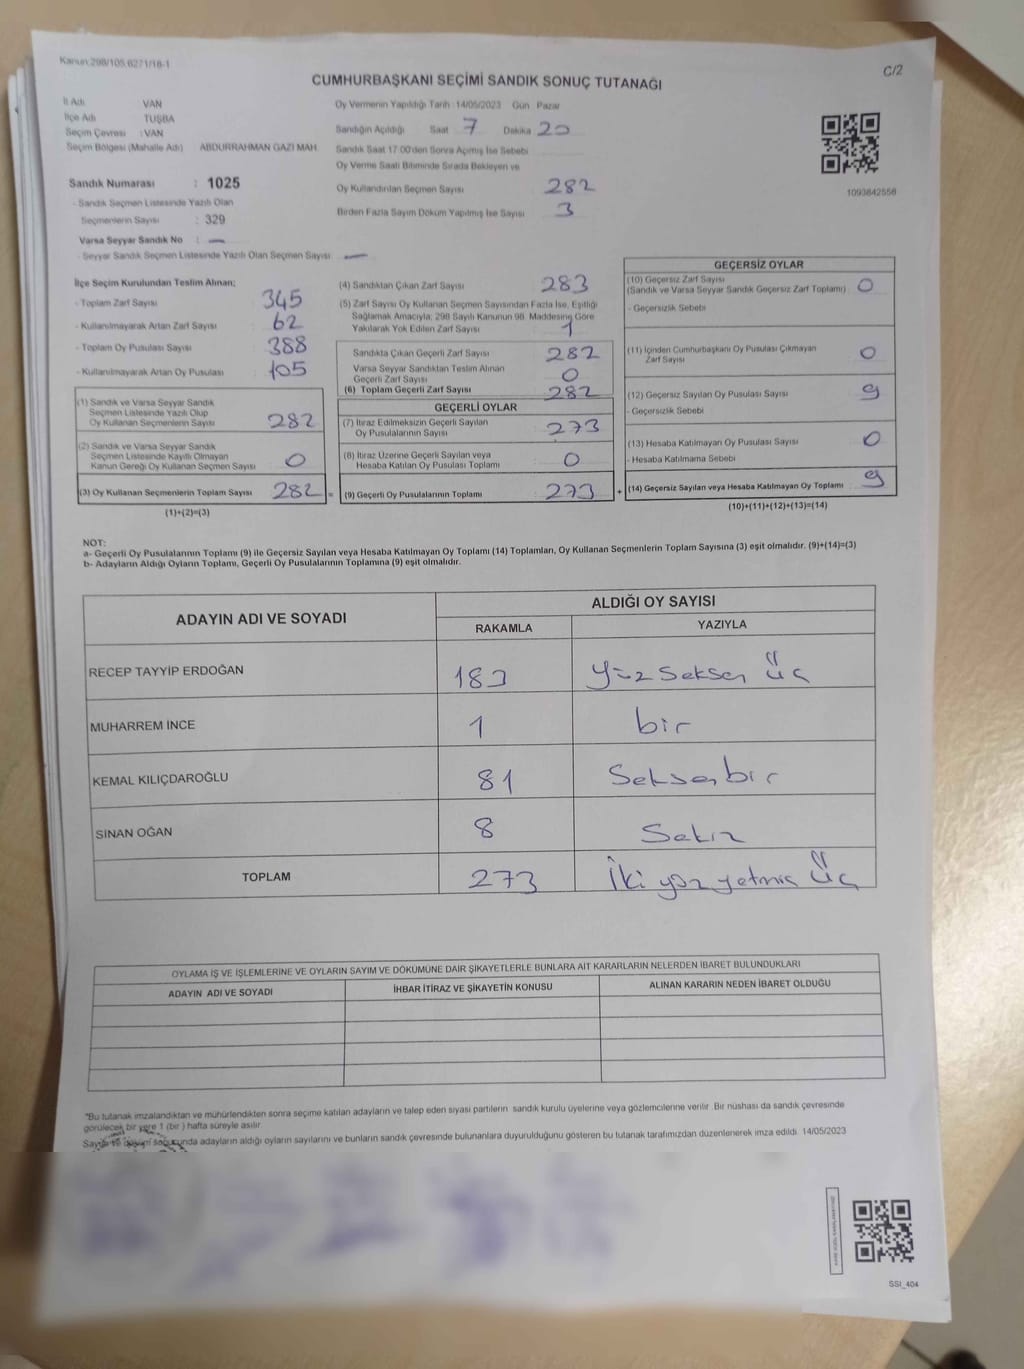 Kanun:298/105,6271/18-1
C/2
CUMHURBAŞKANI SEÇİMİ SANDIK SONUÇ TUTANAĞI
İl Adı VAN
İlçe Adı TUŞBA
Seçim Çevresi : VAN
Seçim Bölgesi (Mahalle Adı) ABDURRAHMAN GAZI MAH.
Oy Vermenin Yapıldığı Tarih :14/05/2023 Gün Pazar
Sandığın Açıldığı Saat 7 Dakika 20
Sandık Saat 17:00'den Sonra Açımış İse Sebebi
Oy Verme Saati Bitiminde Sırada Bekleyen ve
Oy Kullandırılan Seçmen Sayısı 282
Birden Fazla Sayım Döküm Yapılmış İse Sayısı 3
1093842556
Sandık Numarası : 1025
- Sandık Seçmen Listesinde Yazılı Olan
Seçmenlerin Sayısı : 329
Varsa Seyyar Sandık No : —
- Seyyar Sandık Seçmen Listesinde Yazılı Olan Seçmen Sayısı: —
İlçe Seçim Kurulundan Teslim Alınan;
- Toplam Zarf Sayısı 345
- Kullanılmayarak Artan Zarf Sayısı : 62
- Toplam Oy Pusulası Sayısı 388
- Kullanılmayarak Artan Oy Pusulası : 105
(1) Sandık ve Varsa Seyyar Sandık
Seçmen Listesinde Yazılı Olup
Oy Kullanan Seçmenlerin Sayısı 282
(2) Sandık ve Varsa Seyyar Sandık
Seçmen Listesinde Kayıtlı Olmayan
Kanun Gereği Oy Kullanan Seçmen Sayısı 0
(3) Oy Kullanan Seçmenlerin Toplam Sayısı 282 =
(1)+(2)=(3)
(4) Sandıktan Çıkan Zarf Sayısı 283
(5) Zarf Sayısı Oy Kullanan Seçmen Sayısından Fazla İse, Eşitliği
Sağlamak Amacıyla; 298 Sayılı Kanunun 98. Maddesine Göre
Yakılarak Yok Edilen Zarf Sayısı 1
Sandıkta Çıkan Geçerli Zarf Sayısı 282
Varsa Seyyar Sandıktan Teslim Alınan
Geçerli Zarf Sayısı 0
(6) Toplam Geçerli Zarf Sayısı 282
GEÇERLİ OYLAR
(7) İtiraz Edilmeksizin Geçerli Sayılan
Oy Pusulalarının Sayısı 273
(8) İtiraz Üzerine Geçerli Sayılan veya
Hesaba Katılan Oy Pusulası Toplamı 0
(9) Geçerli Oy Pusulalarının Toplamı : 273 +
GEÇERSİZ OYLAR
(10) Geçersiz Zarf Sayısı
(Sandık ve Varsa Seyyar Sandık Geçersiz Zarf Toplamı) 0
- Geçersizlik Sebebi
(11) İçinden Cumhurbaşkanı Oy Pusulası Çıkmayan
Zarf Sayısı 0
(12) Geçersiz Sayılan Oy Pusulası Sayısı 9
- Geçersizlik Sebebi
(13) Hesaba Katılmayan Oy Pusulası Sayısı 0
- Hesaba Katılmama Sebebi
(14) Geçersiz Sayılan veya Hesaba Katılmayan Oy Toplamı 9
(10)+(11)+(12)+(13)=(14)
NOT:
a- Geçerli Oy Pusulalarının Toplamı (9) ile Geçersiz Sayılan veya Hesaba Katılmayan Oy Toplamı (14) Toplamları, Oy Kullanan Seçmenlerin Toplam Sayısına (3) eşit olmalıdır. (9)+(14)=(3)
b- Adayların Aldığı Oyların Toplamı, Geçerli Oy Pusulalarının Toplamına (9) eşit olmalıdır.
ADAYIN ADI VE SOYADI ALDIĞI OY SAYISI
RAKAMLA YAZIYLA
RECEP TAYYİP ERDOĞAN 183 yüz seksen üç
MUHARREM İNCE 1 bir
KEMAL KILIÇDAROĞLU 81 Seksenbir
SİNAN OĞAN 8 Sekiz
TOPLAM 273 İki yüz yetmiş üç
OYLAMA İŞ VE İŞLEMLERİNE VE OYLARIN SAYIM VE DÖKÜMÜNE DAİR ŞİKAYETLERLE BUNLARA AİT KARARLARIN NELERDEN İBARET BULUNDUKLARI
ADAYIN ADI VE SOYADI İHBAR İTİRAZ VE ŞİKAYETİN KONUSU ALINAN KARARIN NEDEN İBARET OLDUĞU
"Bu tutanak imzalandıktan ve mühürlendikten sonra seçime katılan adayların ve talep eden siyasi partilerin sandık kurulu üyelerine veya gözlemcilerine verilir. Bir nüshası da sandık çevresinde
görülecek bir yere 1 (bir) hafta süreyle asılır.
Sayım ve döküm sonucunda adayların aldığı oyların sayılarını ve bunların sandık çevresinde bulunanlara duyurulduğunu gösteren bu tutanak tarafımızdan düzenlenerek imza edildi. 14/05/2023
SSI_404